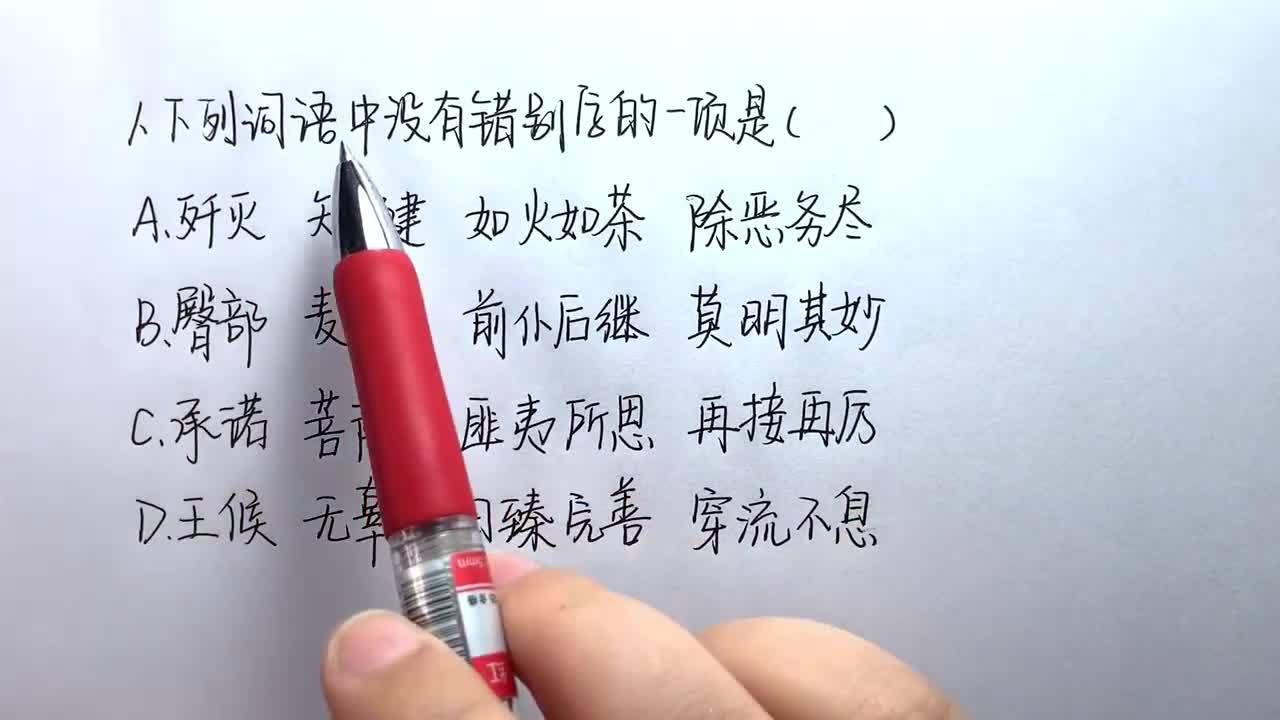 1.下列词语中没有错别字的一项是( )
A.歼灭 如火如茶 除恶务尽
B.臀部 麦 前仆后继 莫明其妙
C.承诺 菩 匪夷所思 再接再厉
D.王候 无辜 臻完善 穿流不息
5mm